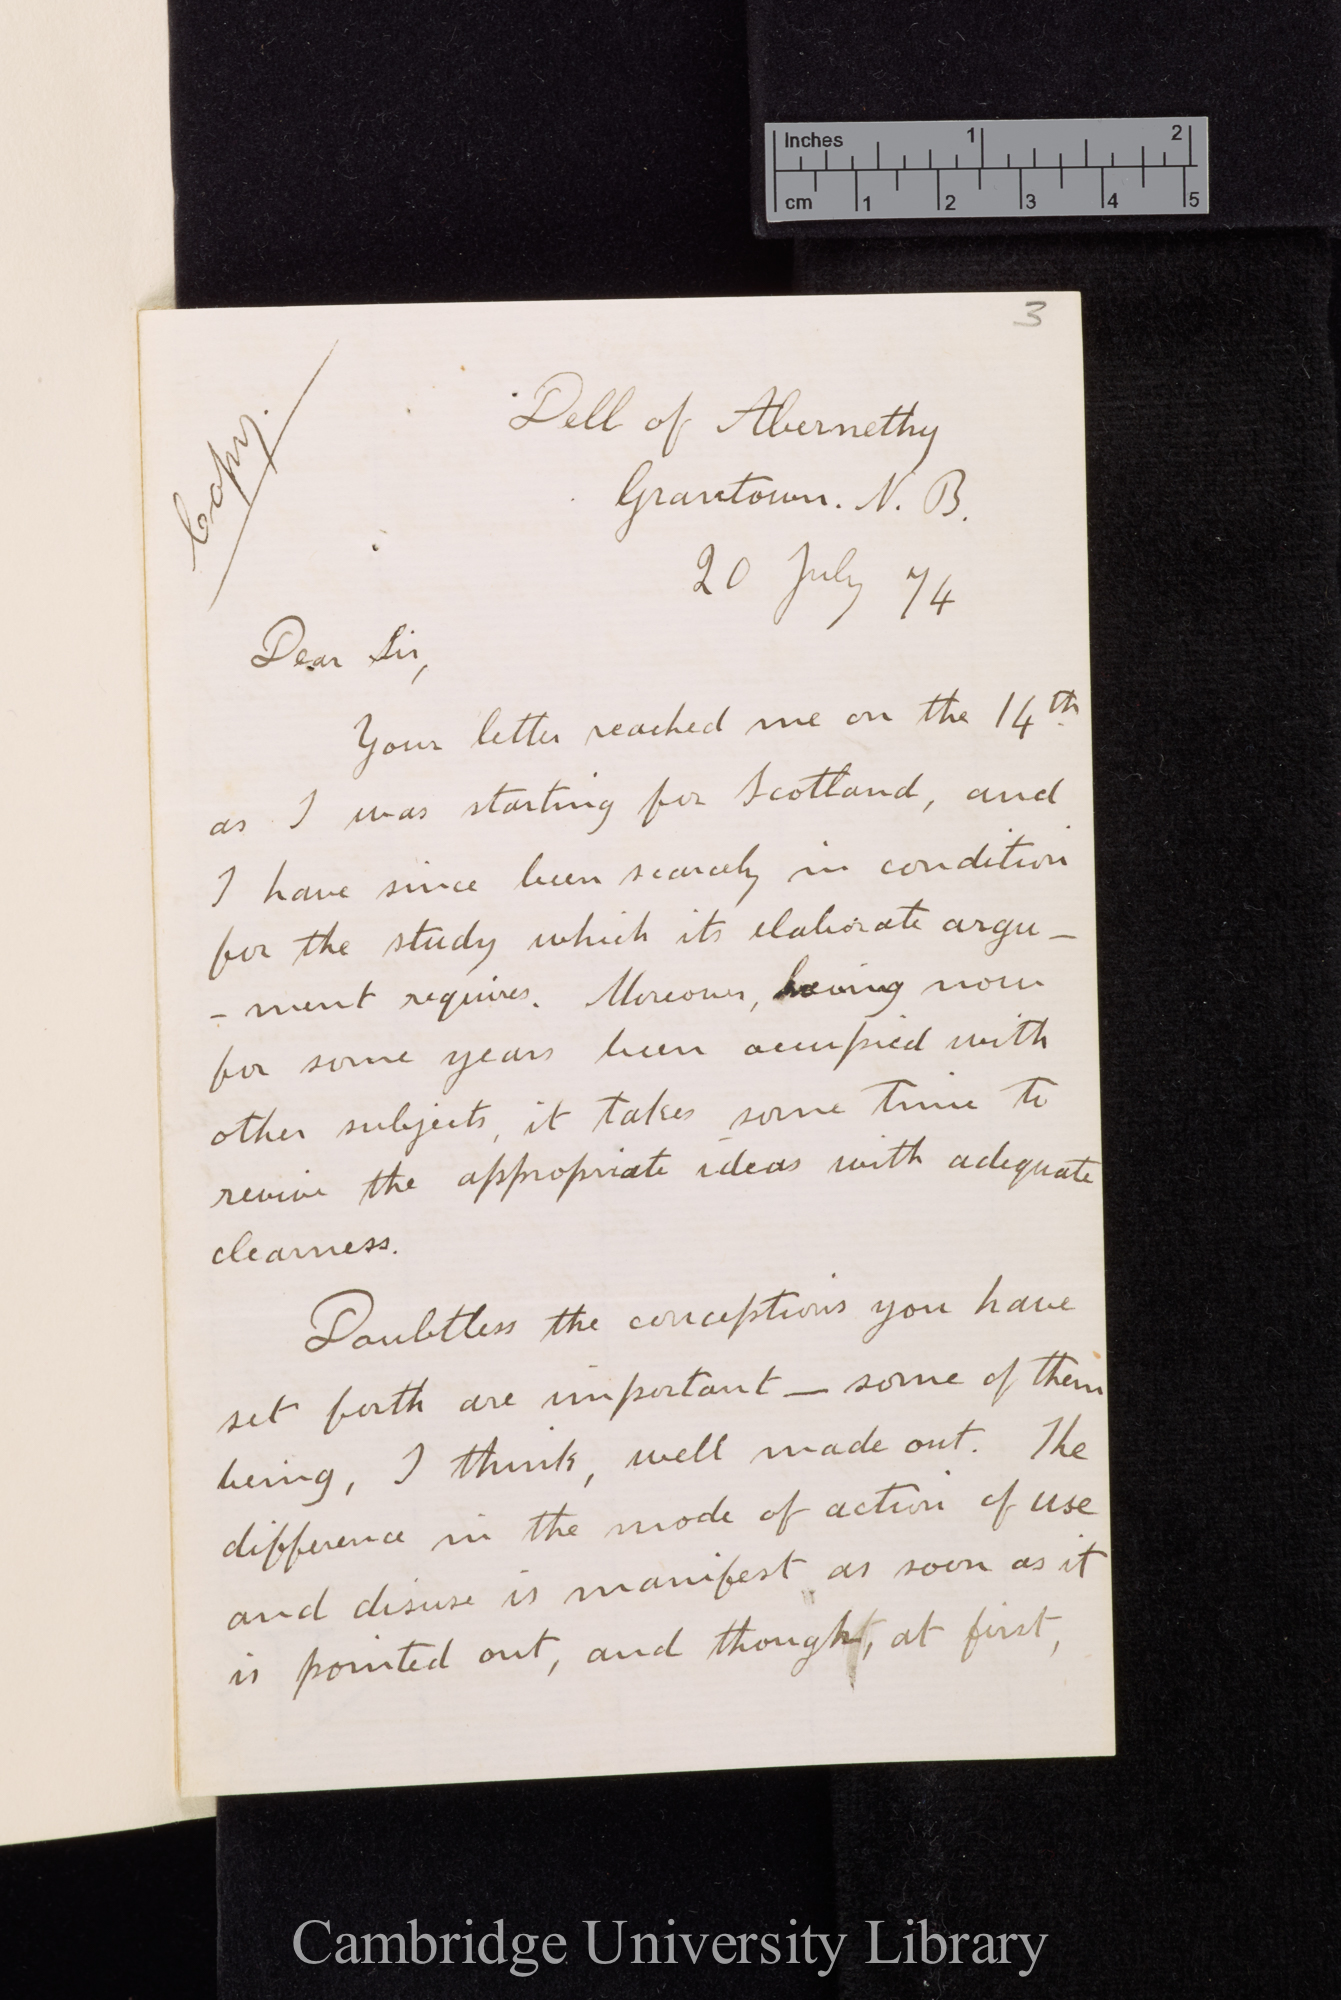 Inches 1 2
cm 1 2 3 4 5
3
Copy.
Dell of Abernethy
Grantown. N. B.
20 July 74
Dear Sir,
Your letter reached me on the 14th.
as I was starting for Scotland, and
I have since been scarcely in condition
for the study which its elaborate argu-
-ment requires. Moreover, having now
for some years been occupied with
other subjects, it takes some time to
revive the appropriate ideas with adequate
clearness.
Doubtless the conceptions you have
set forth are important — some of them
being, I think, well made out. The
difference in the mode of action of use
and disuse is manifest as soon as it
is pointed out, and though, at first,
Cambridge University Library